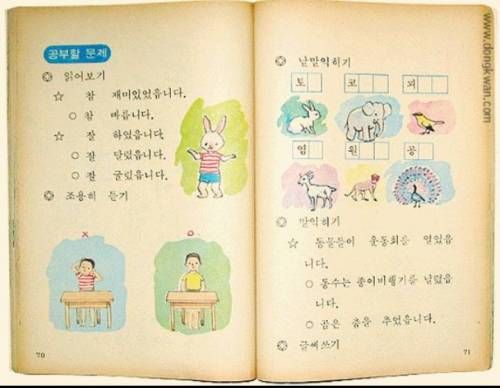 공부할 문제
◎ 읽어보기
☆ 참 재미있었읍니다.
○ 참 빠릅니다.
☆ 잘 하였읍니다.
○ 잘 달렸읍니다.
○ 잘 굴렀읍니다.
◎ 조용히 듣기
× ○
70
◎ 낱말익히기
토 코 꾀
염 원 공
◎ 말익히기
☆ 동물들이 운동회를 열었읍
니다.
○ 동수는 종이비행기를 날렸읍
니다.
○ 곰은 춤을 추었읍니다.
◎ 글씨쓰기
71
www.dongkwan.com